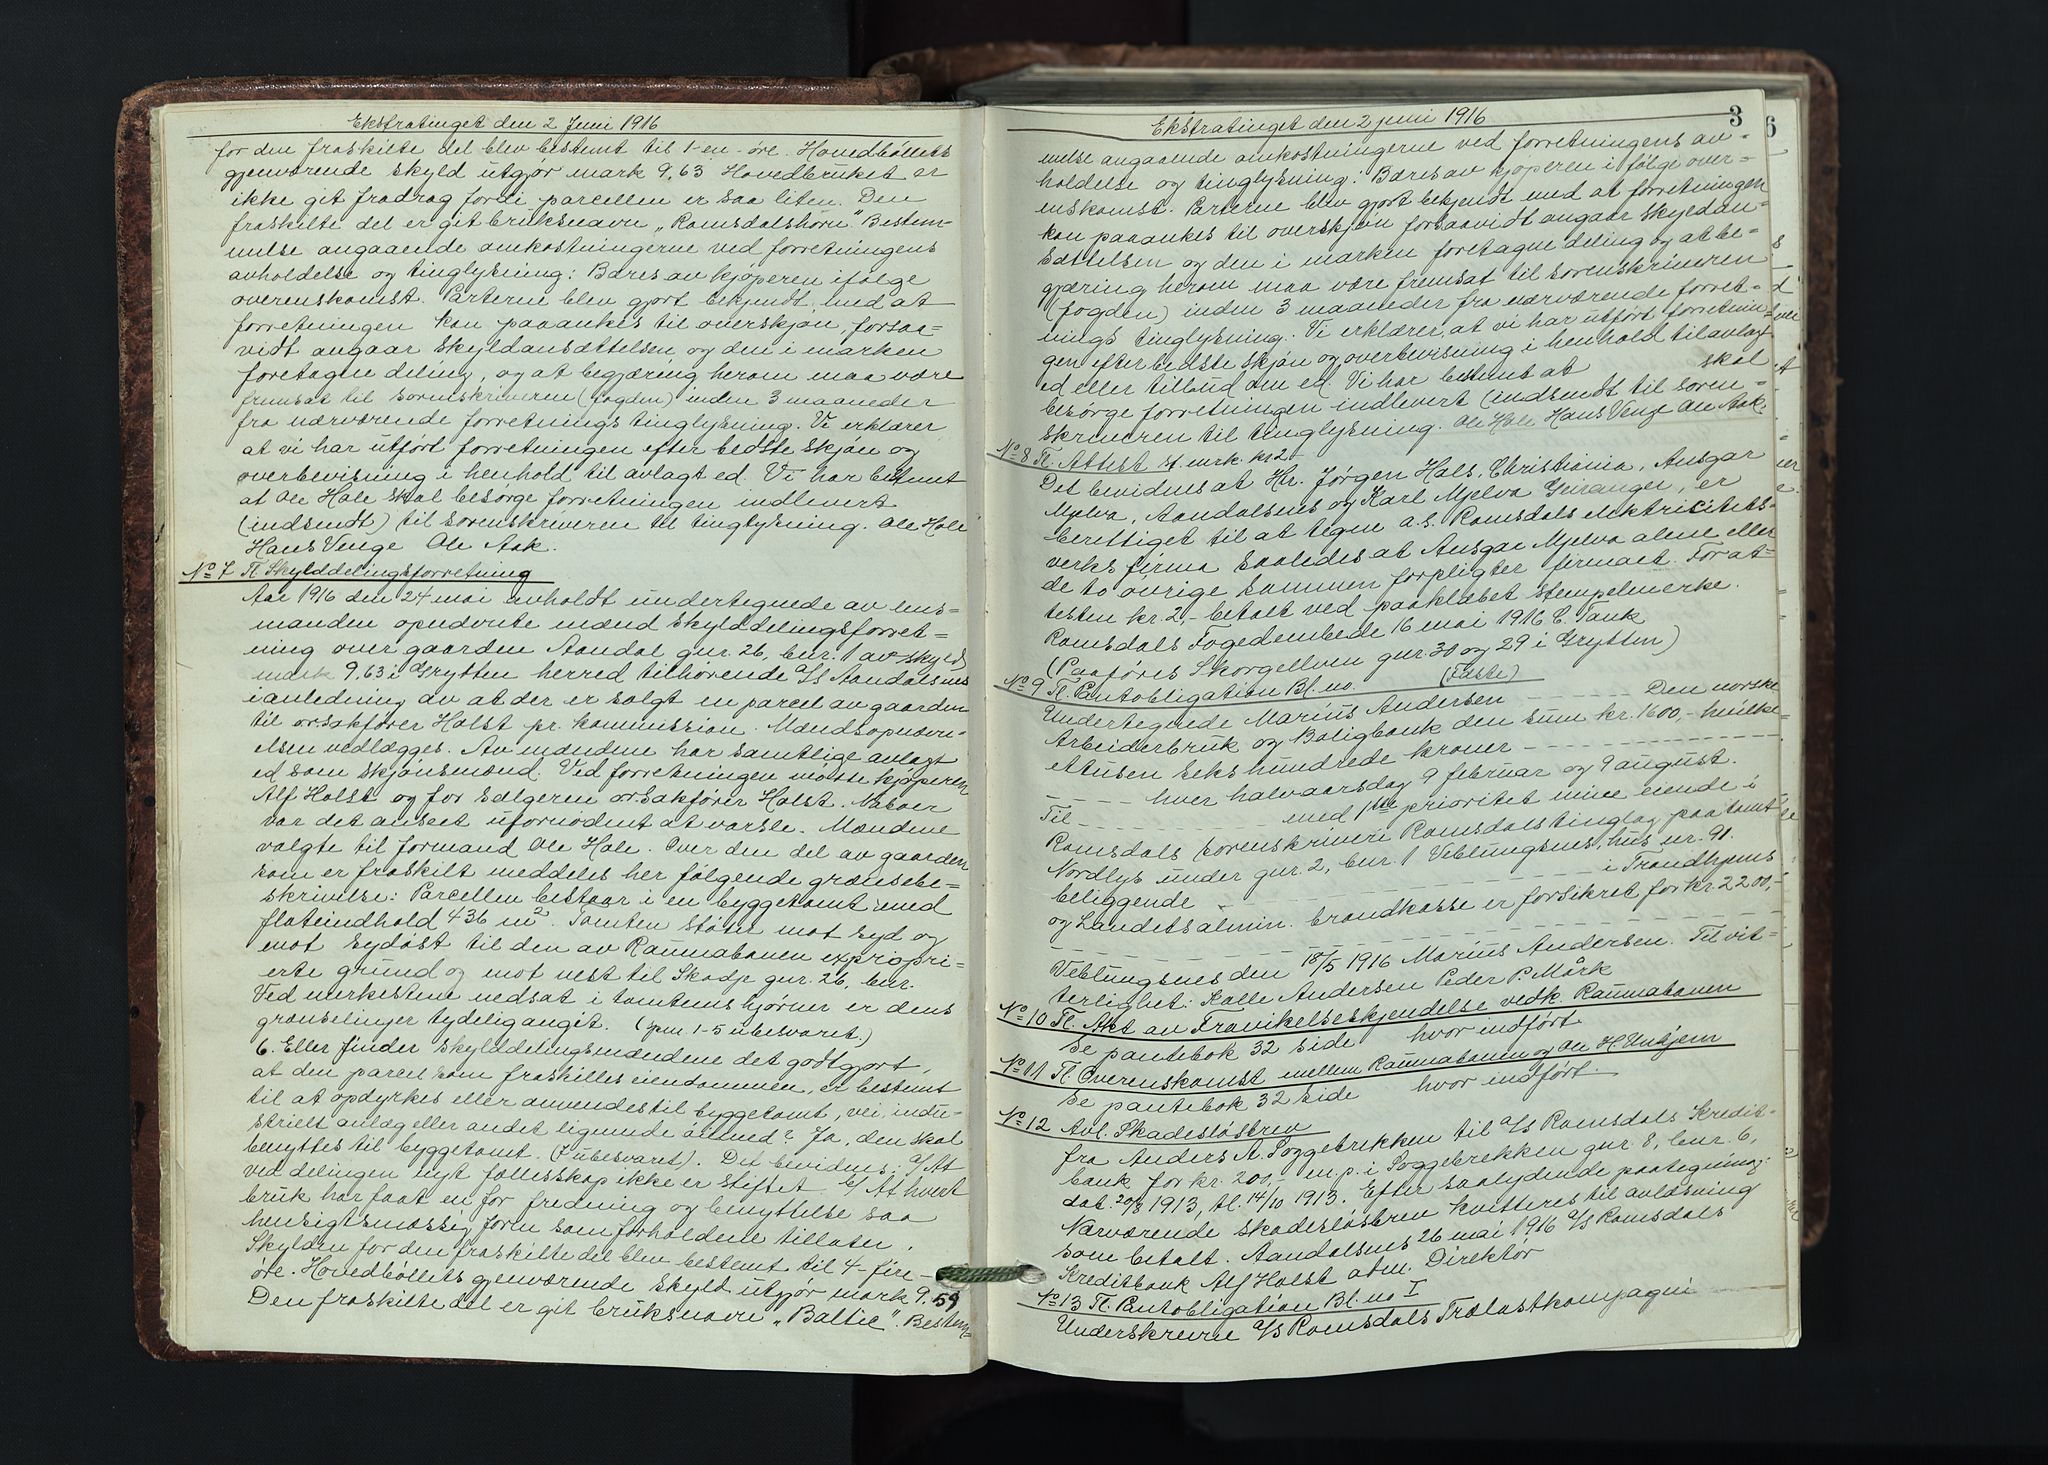 Ekstratinget den 2 Juni 1916
for den fraskilte del blev bestemt til 1-en-öre. Hovedböllets
gjenværende skyld utgjør mark 9,63 Hovedbruket er
ikke git fradrag fordi parcellen er saa liten. Den
fraskilte del er git bruksnavn „Romsdalshorn". Bestem-
melse angaaende omkostningerne ved forretningens
avholdelse og tinglysning: Bæres av kjøperen ifølge
overenskomst. Parterne blev gjort bekjendt med at
forretningen kan paaankes til overskjøn, forsaa=
vidt angaar skyldansættelsen og den i marken
foretagne deling, og at begjæring herom maa være
fremsat til sorenskriveren (fogden) inden 3 maaneder
fra nærværende forretnings tinglysning. Vi erklærer
at vi har utført forretningen efter bedste skjøn og
overbevisning i henhold til avlagt ed. Vi har bestemt
at Ole Hole skal besørge forretningen indlevert
(indsendt) til sorenskriveren til tinglysning. Ole Hole
Hans Venge Ole Aak.
No 7 Tl. Skylddelingsforretning
Aar 1916 den 24 mai avholdt undertegnede av lens=
manden opnævnte mænd skylddelingsforret=
ning over gaarden Aandal gnr. 26, bnr. 1 av skyld
mark 9,63 i Grytten herred tilhørende A/S Aandalsnes
i anledning av at der er solgt en parcel av gaarden
til orsakfører Holst pr. kommission. Mændsopnævn-
elsen vedlægges. Av mændene har samtlige avlagt
ed som skjønsmænd. Ved forretningen møtte kjøperen
Alf Holst og for sælgeren orsakfører Holst. Naboer
var det anseet ufornødent at varsle. Mændene
valgte til formand Ole Hole. Over den del av gaarden
som er fraskilt meddeles her følgende grænsebe=
skrivelse: Parcellen bestaar i en byggetomt med
flateindhold 436 m². Tomten støter mot syd og
mot sydøst til den av Raumabanen expropri=
erte grund og mot vest til Skodje gnr. 26, bnr.
Ved merkestene nedsat i tomtens hjørner er dens
grænselinjer tydelig angit. (spm. 1-5 ubesvaret.)
6. Eller finder skylddelingsmændene det godtgjort,
at den parcel som fraskilles eiendommen, er bestemt
til at opdyrkes eller anvendes til byggetomt, vei, indu-
strielt anlæg eller andet lignende øiemed? Ja, den skal
benyttes til byggetomt. (7 ubesvaret). Det bevidnes: a/ At
ved delingen nyt fællesskap ikke er stiftet b/ At hvert
bruk har faat en for fredning og benyttelse saa
hensigtsmæssig form som forholdene tillater.
Skylden for den fraskilte del blev bestemt til 4-fire-
øre. Hovedböllets gjenværende skyld utgjør mark 9.59
Den fraskilte del er git bruksnavn „Baltic". Bestem=
3
Ekstratinget den 2 juni 1916
melse angaaende omkostningerne ved forretningens av=
holdelse og tinglysning: Bæres av kjøperen ifølge over=
enskomst. Parterne blev gjort bekjendt med at forretningen
kan paaankes til overskjøn forsaavidt angaar skyldan=
sættelsen og den i marken foretagne deling og at be=
gjæring herom maa være fremsat til sorenskriveren
(fogden) inden 3 maaneder fra nærværende forret=
nings tinglysning. Vi erklærer, at vi har utført forretnin=
gen efter bedste skjøn og overbevisning i henhold til avlagt
ed eller tilbud om ed. Vi har bestemt at skal
besørge forretningen indlevert (indsendt til soren=
skriveren til tinglysning. Ole Hole Hans Venge Ole Aak.
No 8 Tl. Attest st.mrk. kr 2
Det bevidnes at Hr. Jørgen Hals, Christiania, Ansgar
Mjelva, Aandalsnes og Karl Mjelva Geiranger, er
berettiget til at tegne a.s. Romsdals elektricitets-
verks firma saaledes at Ansgar Mjelva alene eller
de to øvrige sammen forpligter firmaet. For at=
testen kr. 2,- betalt ved paaklæbet stempelmerke.
Romsdals Fogedembede 16 mai 1916 C. Tank
(Paaføres Skorgelven gnr. 30 og 29 i Grytten)
No 9 Tl. Pantobligation Bl. no. (Faste)
Undertegnede Marius Andersen Den norske
Arbeiderbruk og Boligbank den sum kr. 1600,- hvilke=
ettusen sekshundrede kroner
hver halvaarsdag 9 februar og 9 august.
Til med 1ste prioritet mine eiende i
Romsdals sorenskriveri Romsdals tinglag paa tomt
Nordlys under gnr. 2, bnr. 1 Veblungsnes, hus nr. 91.
beliggende i Trondhjems
og Landets almin. brandkasse er forsikret for kr. 2200,-
Veblungsnes den 18/5 1916 Marius Andersen. Til vit-
terlighet: Kalle Andersen Peder P. Mårk
No 10 Tl. Akt av Fravikelseskjendelse vedk. Raumabanen
Se pantebok 32 side hvor indført
No 11 Tl. Overenskomst mellem Raumabanen og Ole H. Unhjem
Se pantebok 32 side hvor indført.
No 12 Avl. Skadesløsbrev
fra Anders A. Soggebrekken til A/S Romsdals Kredit-
bank for kr. 200,- m.p. i Soggebrekken gnr. 8, bnr. 6,
dat. 20/8 1913, tl. 14/10 1913. Efter saalydende paategning:
Nærværende skadesløsbrev kvitteres til avlæsning
som betalt. Aandalsnes 26 mai 1916 A/S Romsdals
Kreditbank Alf Holst adm. Direktør
No 13 Tl. Pantobligation Bl. no I
Underskrevne A/S Romsdals Trælastkompagni